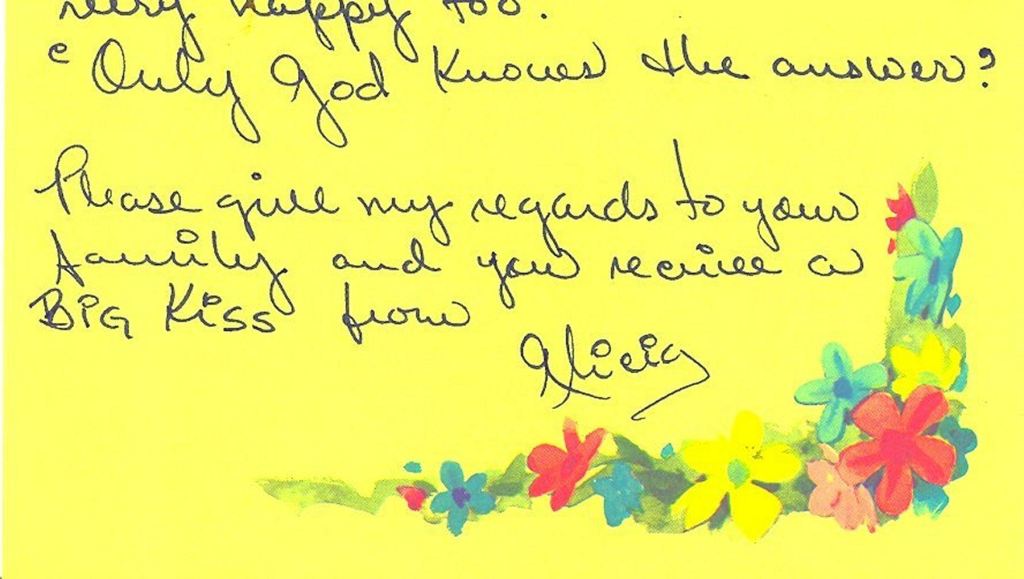 very happy too.
"Only God Knows the answer?
Please give my regards to your
family and you receive a
BIG KISS from
Alicia